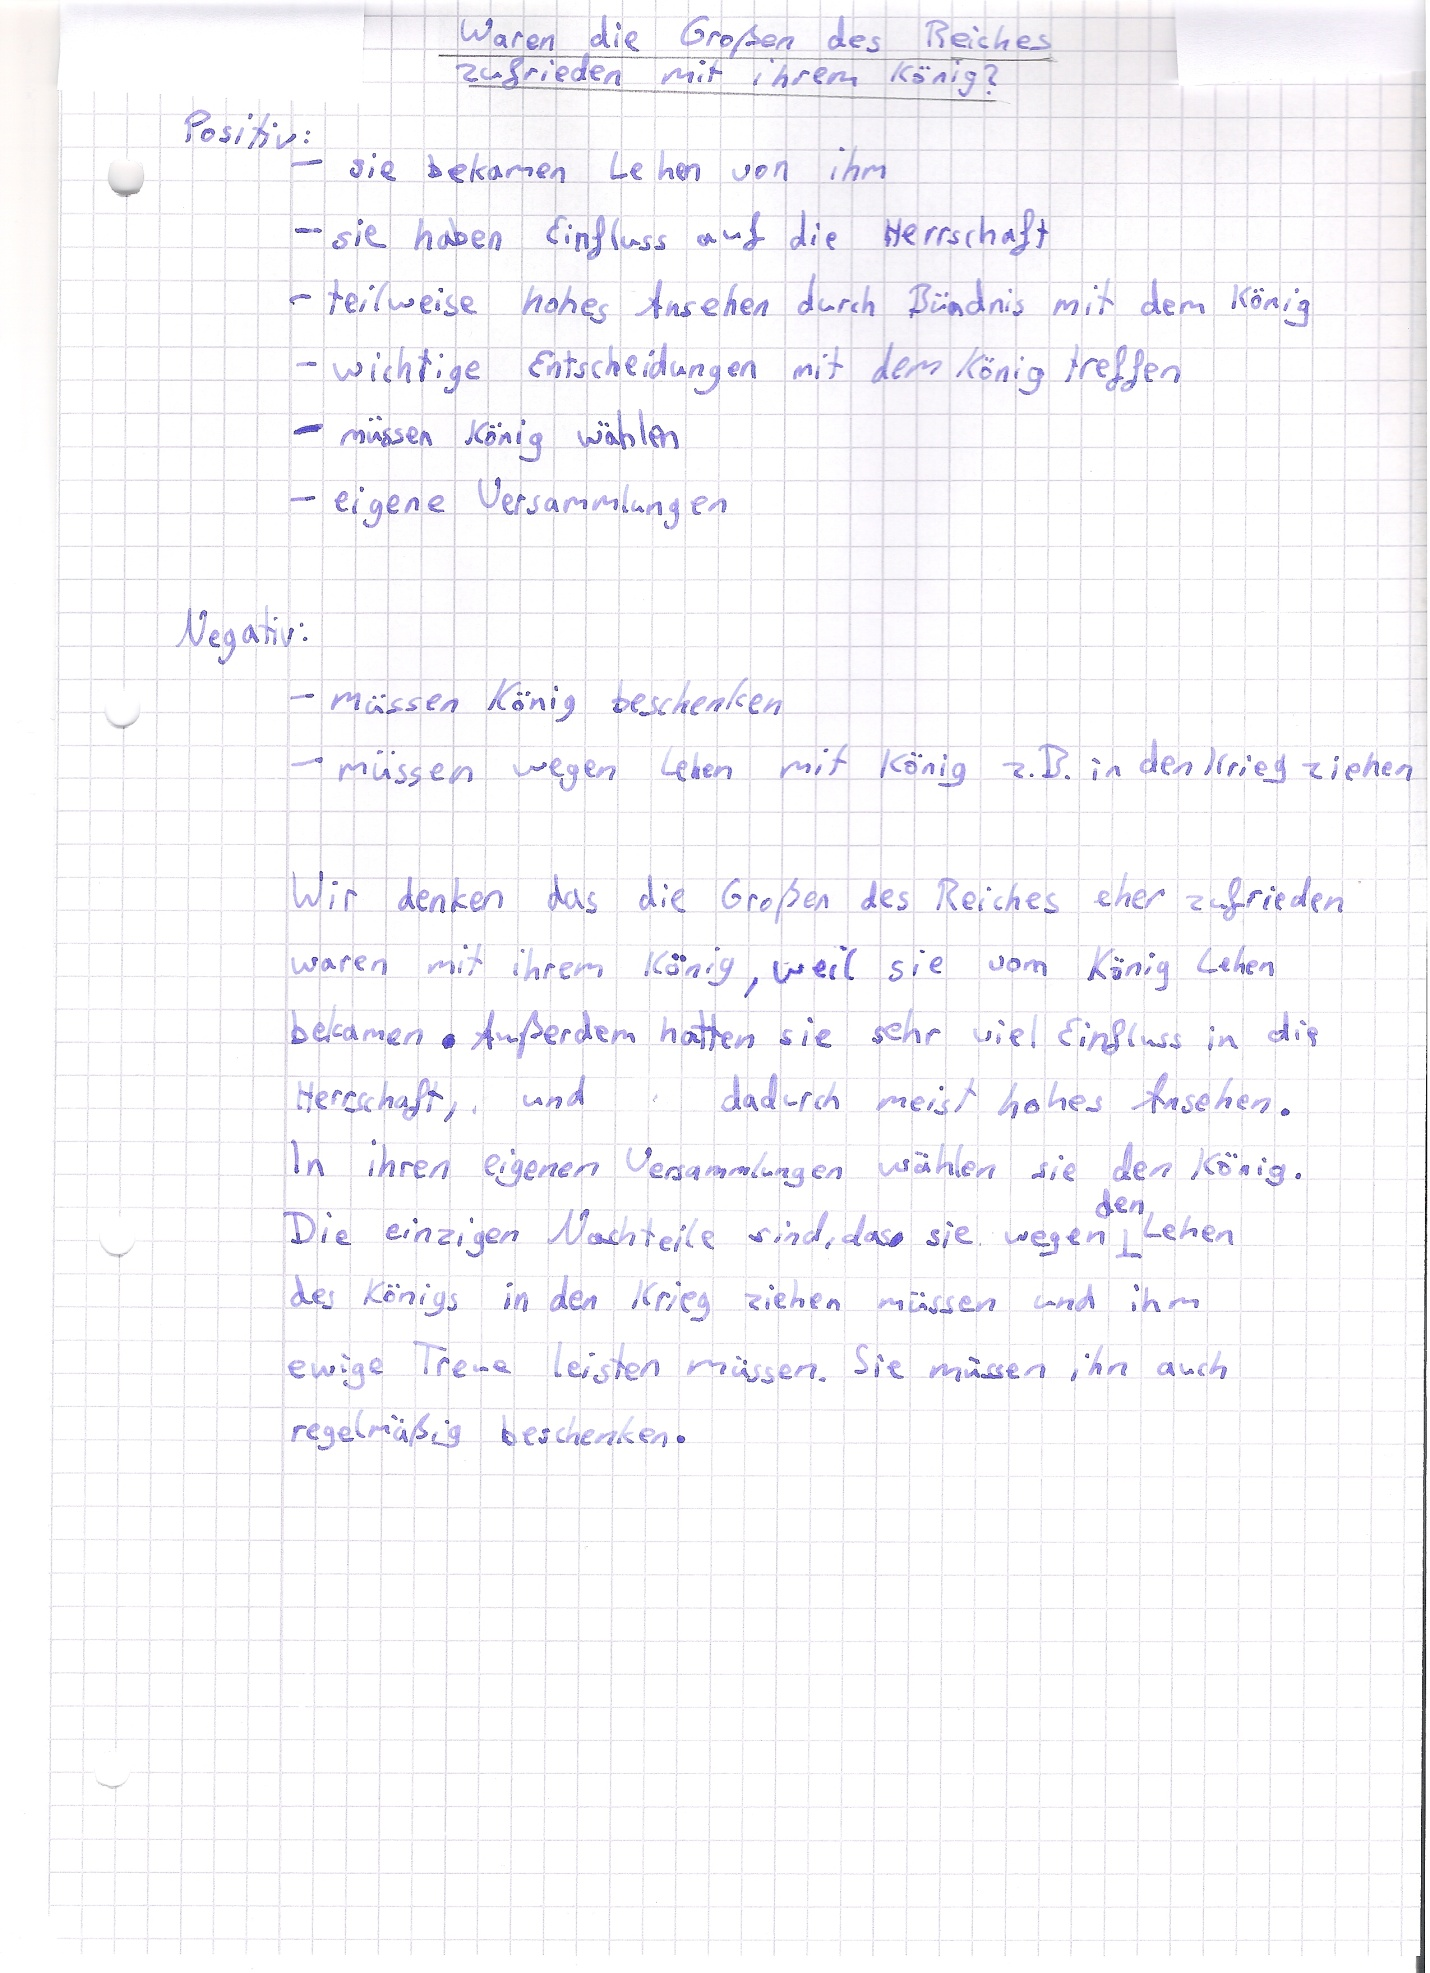 Waren die Großen des Reiches
zufrieden mit ihrem König?
Positiv:
- sie bekamen Lehen von ihm
- sie haben Einfluss auf die Herrschaft
- teilweise hohes Ansehen durch Bündnis mit dem König
- wichtige Entscheidungen mit dem König treffen
- müssen König wählen
- eigene Versammlungen
Negativ:
- müssen König beschenken
- müssen wegen Lehen mit König z.B. in den Krieg ziehen
Wir denken das die Großen des Reiches eher zufrieden
waren mit ihrem König, weil sie vom König Lehen
bekamen. Außerdem hatten sie sehr viel Einfluss in die
Herrschaft, und dadurch meist hohes Ansehen.
In ihren eigenen Versammlungen wählen sie den König.
den
Die einzigen Nachteile sind, das sie wegen Lehen
des Königs in den Krieg ziehen müssen und ihm
ewige Treue leisten müssen. Sie müssen ihn auch
regelmäßig beschenken.